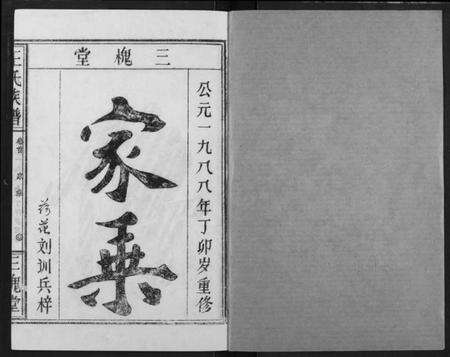 三槐堂
公元一九八八年丁卯岁重修
家乘
刘训兵梓
王氏族谱
卷首
三槐堂